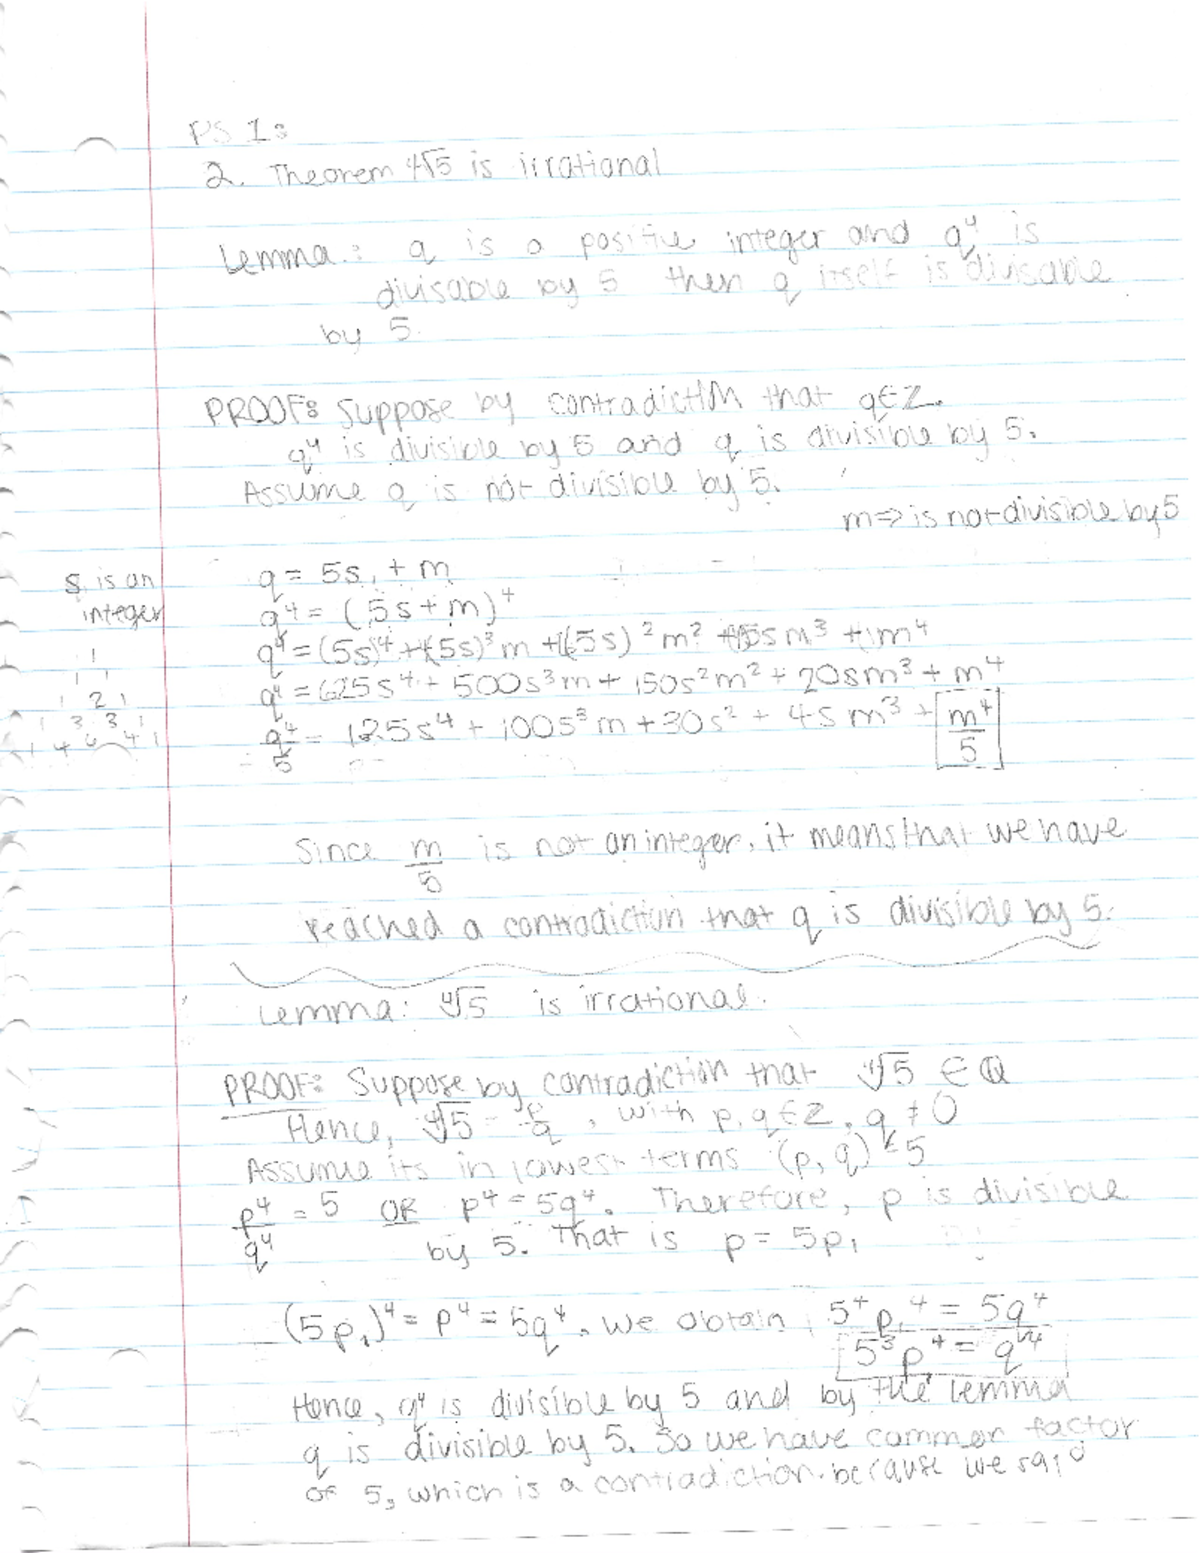 PS 1:
2. Theorem ∜5 is irrational
Lemma: q is a positive integer and q⁴ is
divisable by 5 then q itself is divisable
by 5.
PROOF: Suppose by contradiction that q∈Z.
q⁴ is divisible by 5 and q is divisible by 5.
Assume q is not divisible by 5.
m => is not divisible by 5
s is an
integer
q = 5s + m
q⁴ = (5s + m)⁴
q⁴ = (5s)⁴ + (5s)³m + (5s)²m² + 5sm³ + 1m⁴
1
1 1
1 2 1
1 3 3 1
1 4 6 4 1
q⁴ = 625s⁴ + 500s³m + 150s²m² + 20sm³ + m⁴
q⁴/5 = 125s⁴ + 100s³m + 30s² + 4sm³ + m⁴/5
Since m/5 is not an integer, it means that we have
reached a contradiction that q is divisible by 5.
Lemma: ∜5 is irrational.
PROOF: Suppose by contradiction that ∜5 ∈ Q
Hence, ∜5 = p/q, with p, q ∈ Z, q ≠ 0
Assume its in lowest terms (p, q) 5
p⁴/q⁴ = 5 OR p⁴ = 5q⁴. Therefore, p is divisible
by 5. That is p = 5p₁
(5p₁)⁴ = p⁴ = 5q⁴. We obtain 5⁴p₁⁴ = 5q⁴
5³p₁⁴ = q⁴
Hence, q⁴ is divisible by 5 and by the lemma
q is divisible by 5. So we have common factor
of 5, which is a contradiction because we said